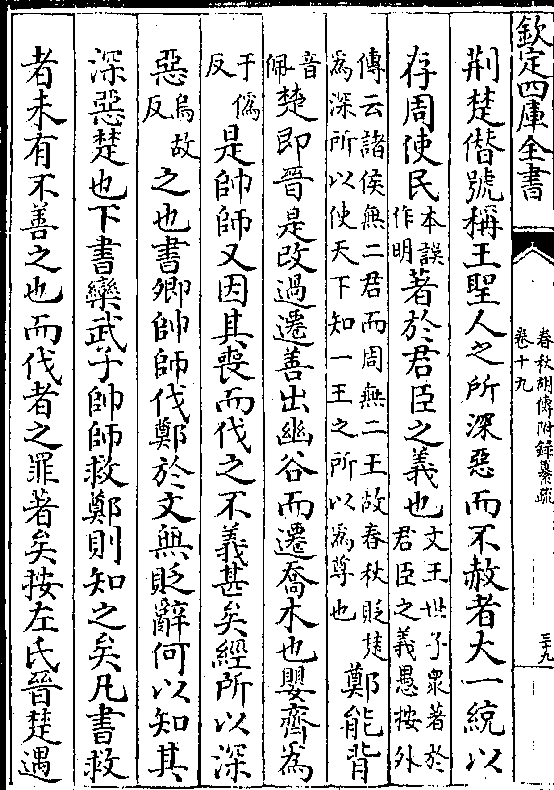 欽定四庫全書
春秋胡傳附録纂疏
卷十九
三九
荆楚僭號稱王聖人之所深惡而不赦者大一統以
存周使民本誤作明著於君臣之義也文王世子衆著於君臣之義愚按外
傳云諸侯無二君而周無二王故春秋貶楚為深所以使天下知一王之所以為尊也鄭能背
音佩楚即晉是改過遷善出幽谷而遷喬木也嬰齊為
于偽反是帥師又因其喪而伐之不義甚矣經所以深
惡烏故反之也書卿帥師伐鄭於文無貶辭何以知其
深惡楚也下書欒武子帥師救鄭則知之矣凡書救
者未有不善之也而伐者之罪著矣按左氏晉楚遇